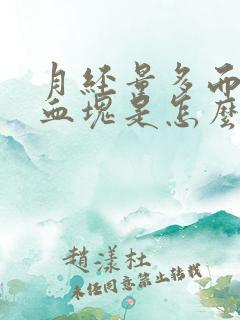 月经量多而
血块是怎麽
赵漾杜
未经同意禁止转载